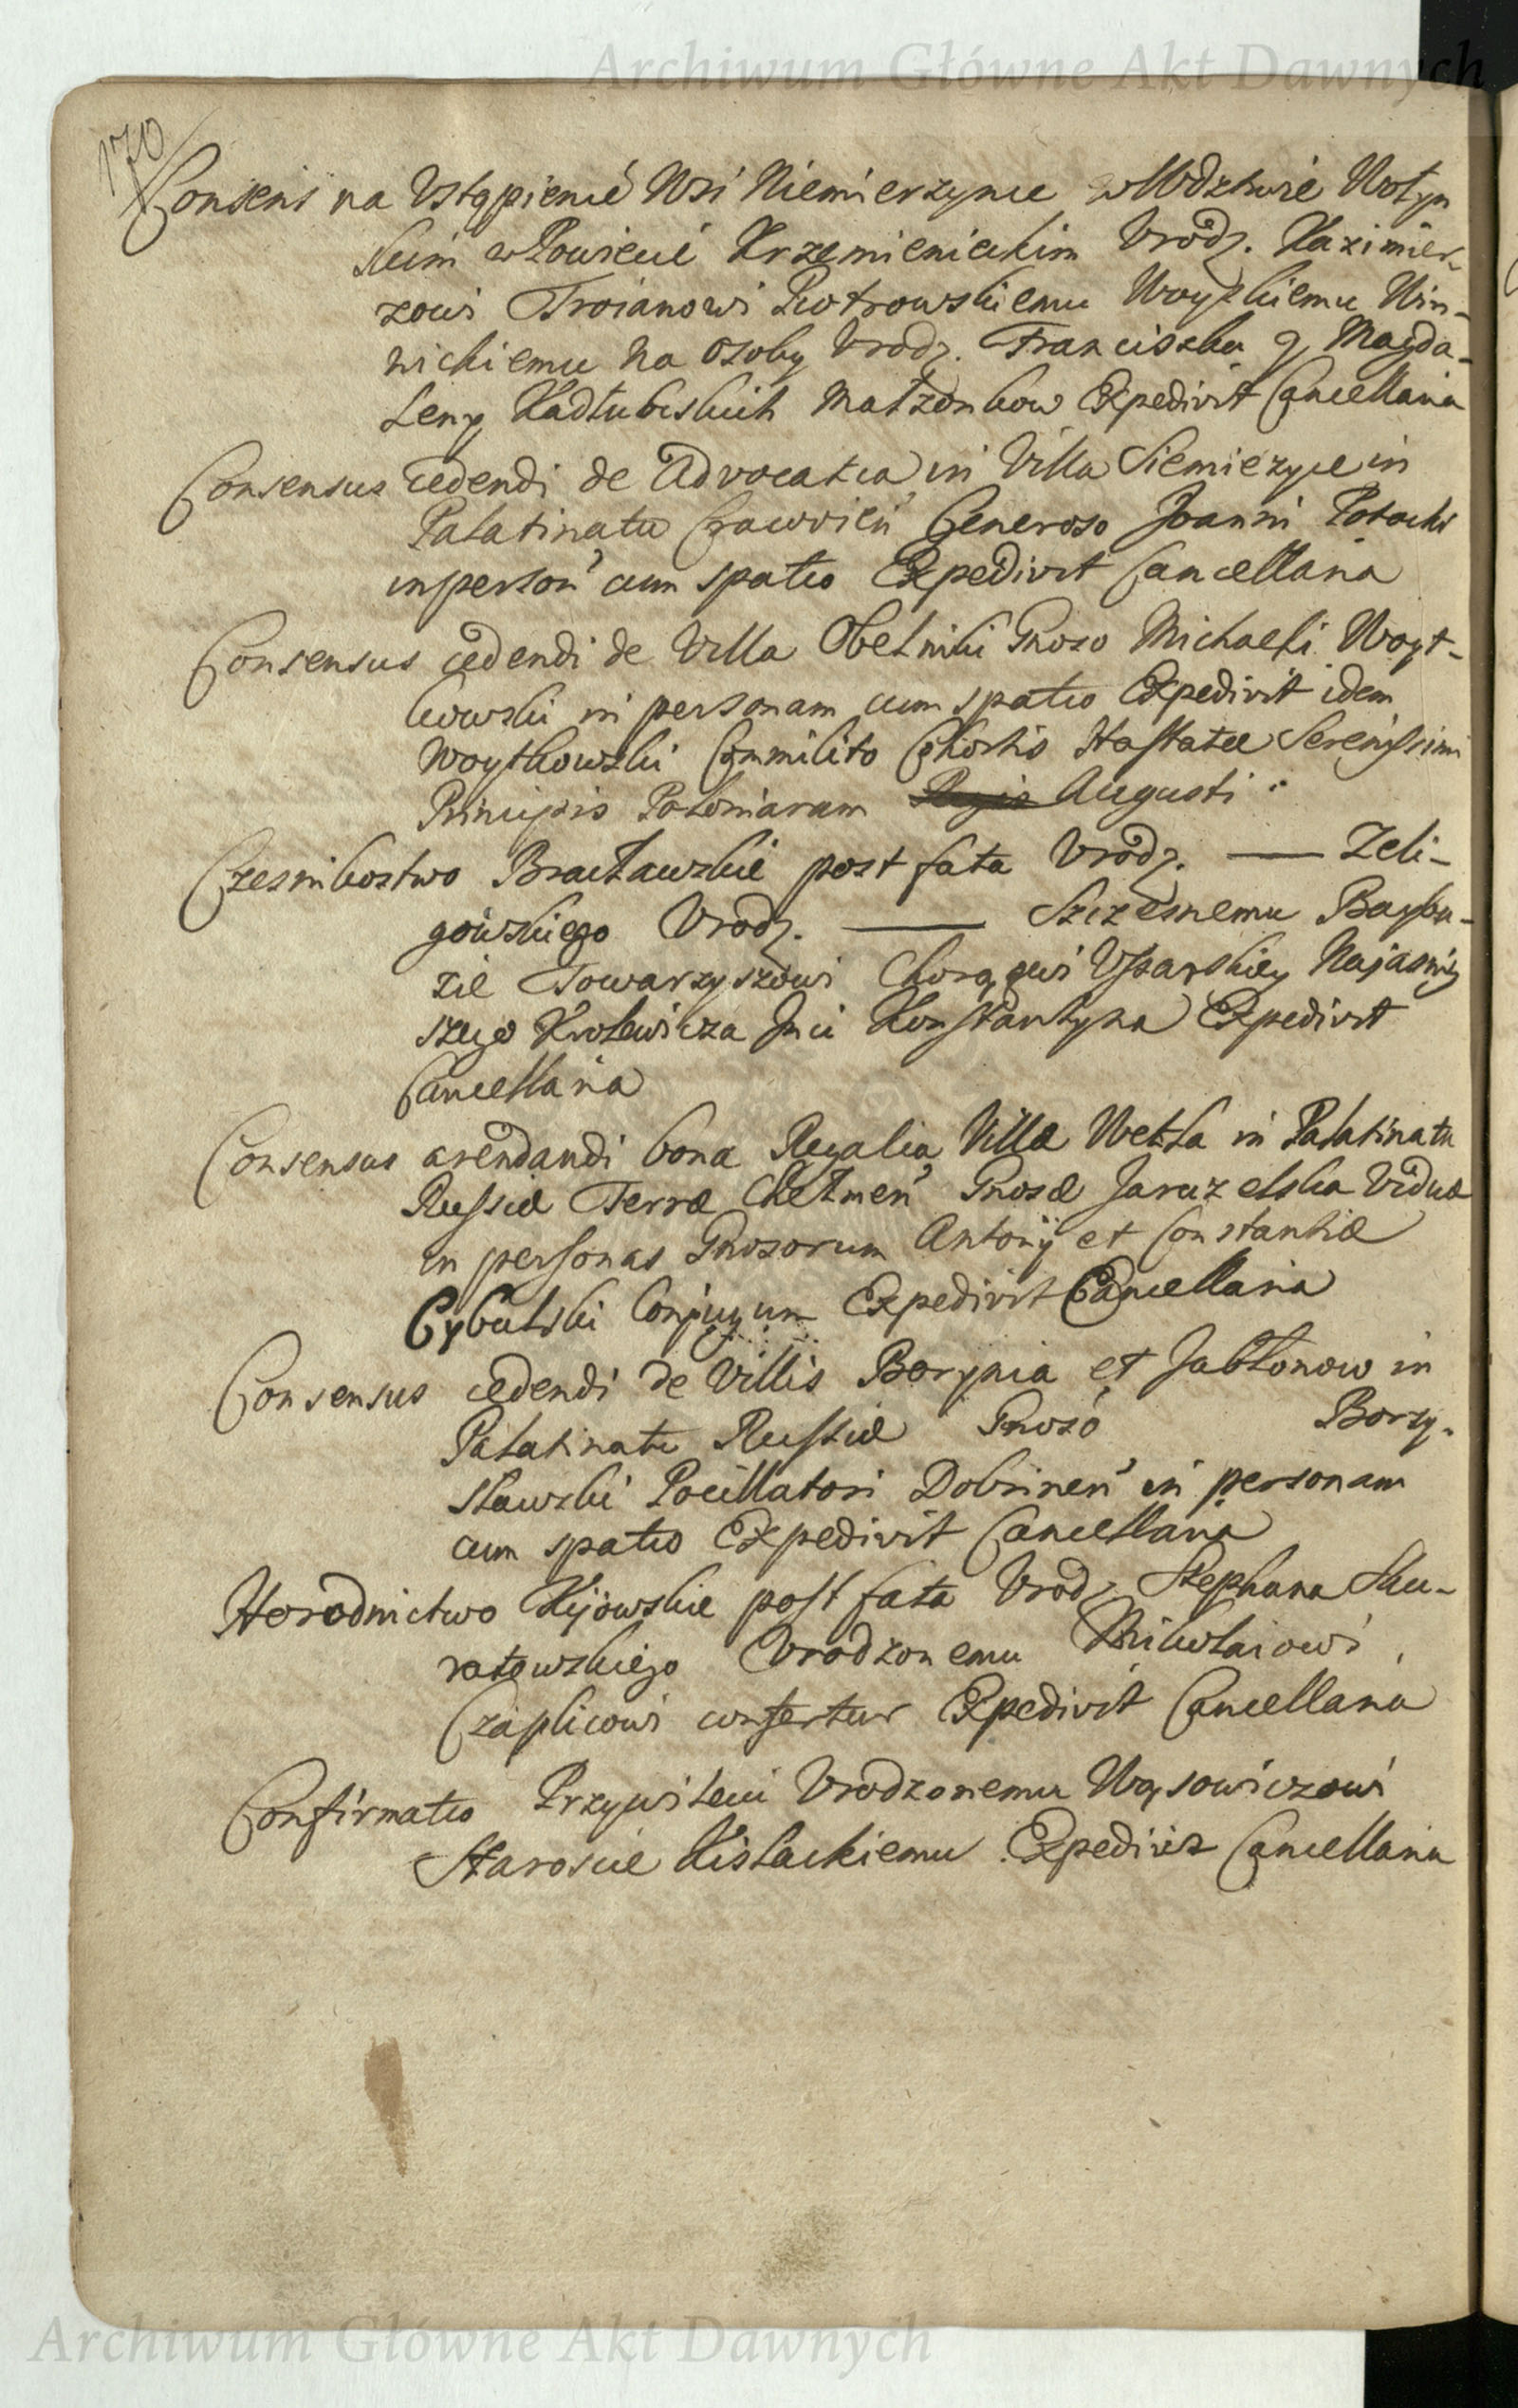 Archiwum Główne Akt Dawnych
170
Consens na Ustąpienie Wsi Niemierzynce w Wdztwie Wołyn
skim w Powiecie Krzemienieckim Urodz. Kazimier-
zowi Troianowi Piotrowskiemu Woyskiemu Win-
nickiemu na Osoby Urodz. Franciszka y Magda-
leny Kadłubiskich Małzonkow Expedivit Cancellaria
Consensus cedendi de Advocatia in Villa Siemiezyce in
Palatinatu Cracovień Generoso Joanni Potocki
in person cum spatio Expedivit Cancellaria
Consensus cedendi de Villa Obelniki Gnoso Michaeli Woyt-
kowski in personam cum spatio Expedivit idem
Woytkowski Commilito Cohortis Hastatae Serenissimi
Principis Poloniarum Regis Augusti
Czesnikostwo Bracławskie post fata Urodz. — Zeli-
gowskiego Urodz. — Szczesnemu Baybu-
zie Towarzyszowi Chorągwi Usarskiey Najasniey
szego Krolewicza Jmci Konstantyna Expedivit
Cancellaria
Consensus arendandi bona Regalia Villa Wetła in Palatinatu
Russiae Terrae Chełmeń Gnosae Jaruzelska Viduae
in personas Gnosorum Antonij et Constantiae
Cybulski Conjugum Expedivit Cancellaria
Consensus cedendi de Villis Borynia et Jabłonow in
Palatinatu Russiae Gnoso Borzy-
sławski Pocillatori Dobrineń in personam
cum spatio Expedivit Cancellaria
Horodnictwo Kijowskie post fata Urodz. Stephana Sku-
ratowskiego Urodzonemu Mikołaiowi
Czaplicowi confertur Expedivit Cancellaria
Confirmatio Przywileiu Urodzonemu Wąsowiczowi
Staroscie Kislackiemu Expedivit Cancellaria
Archiwum Główne Akt Dawnych